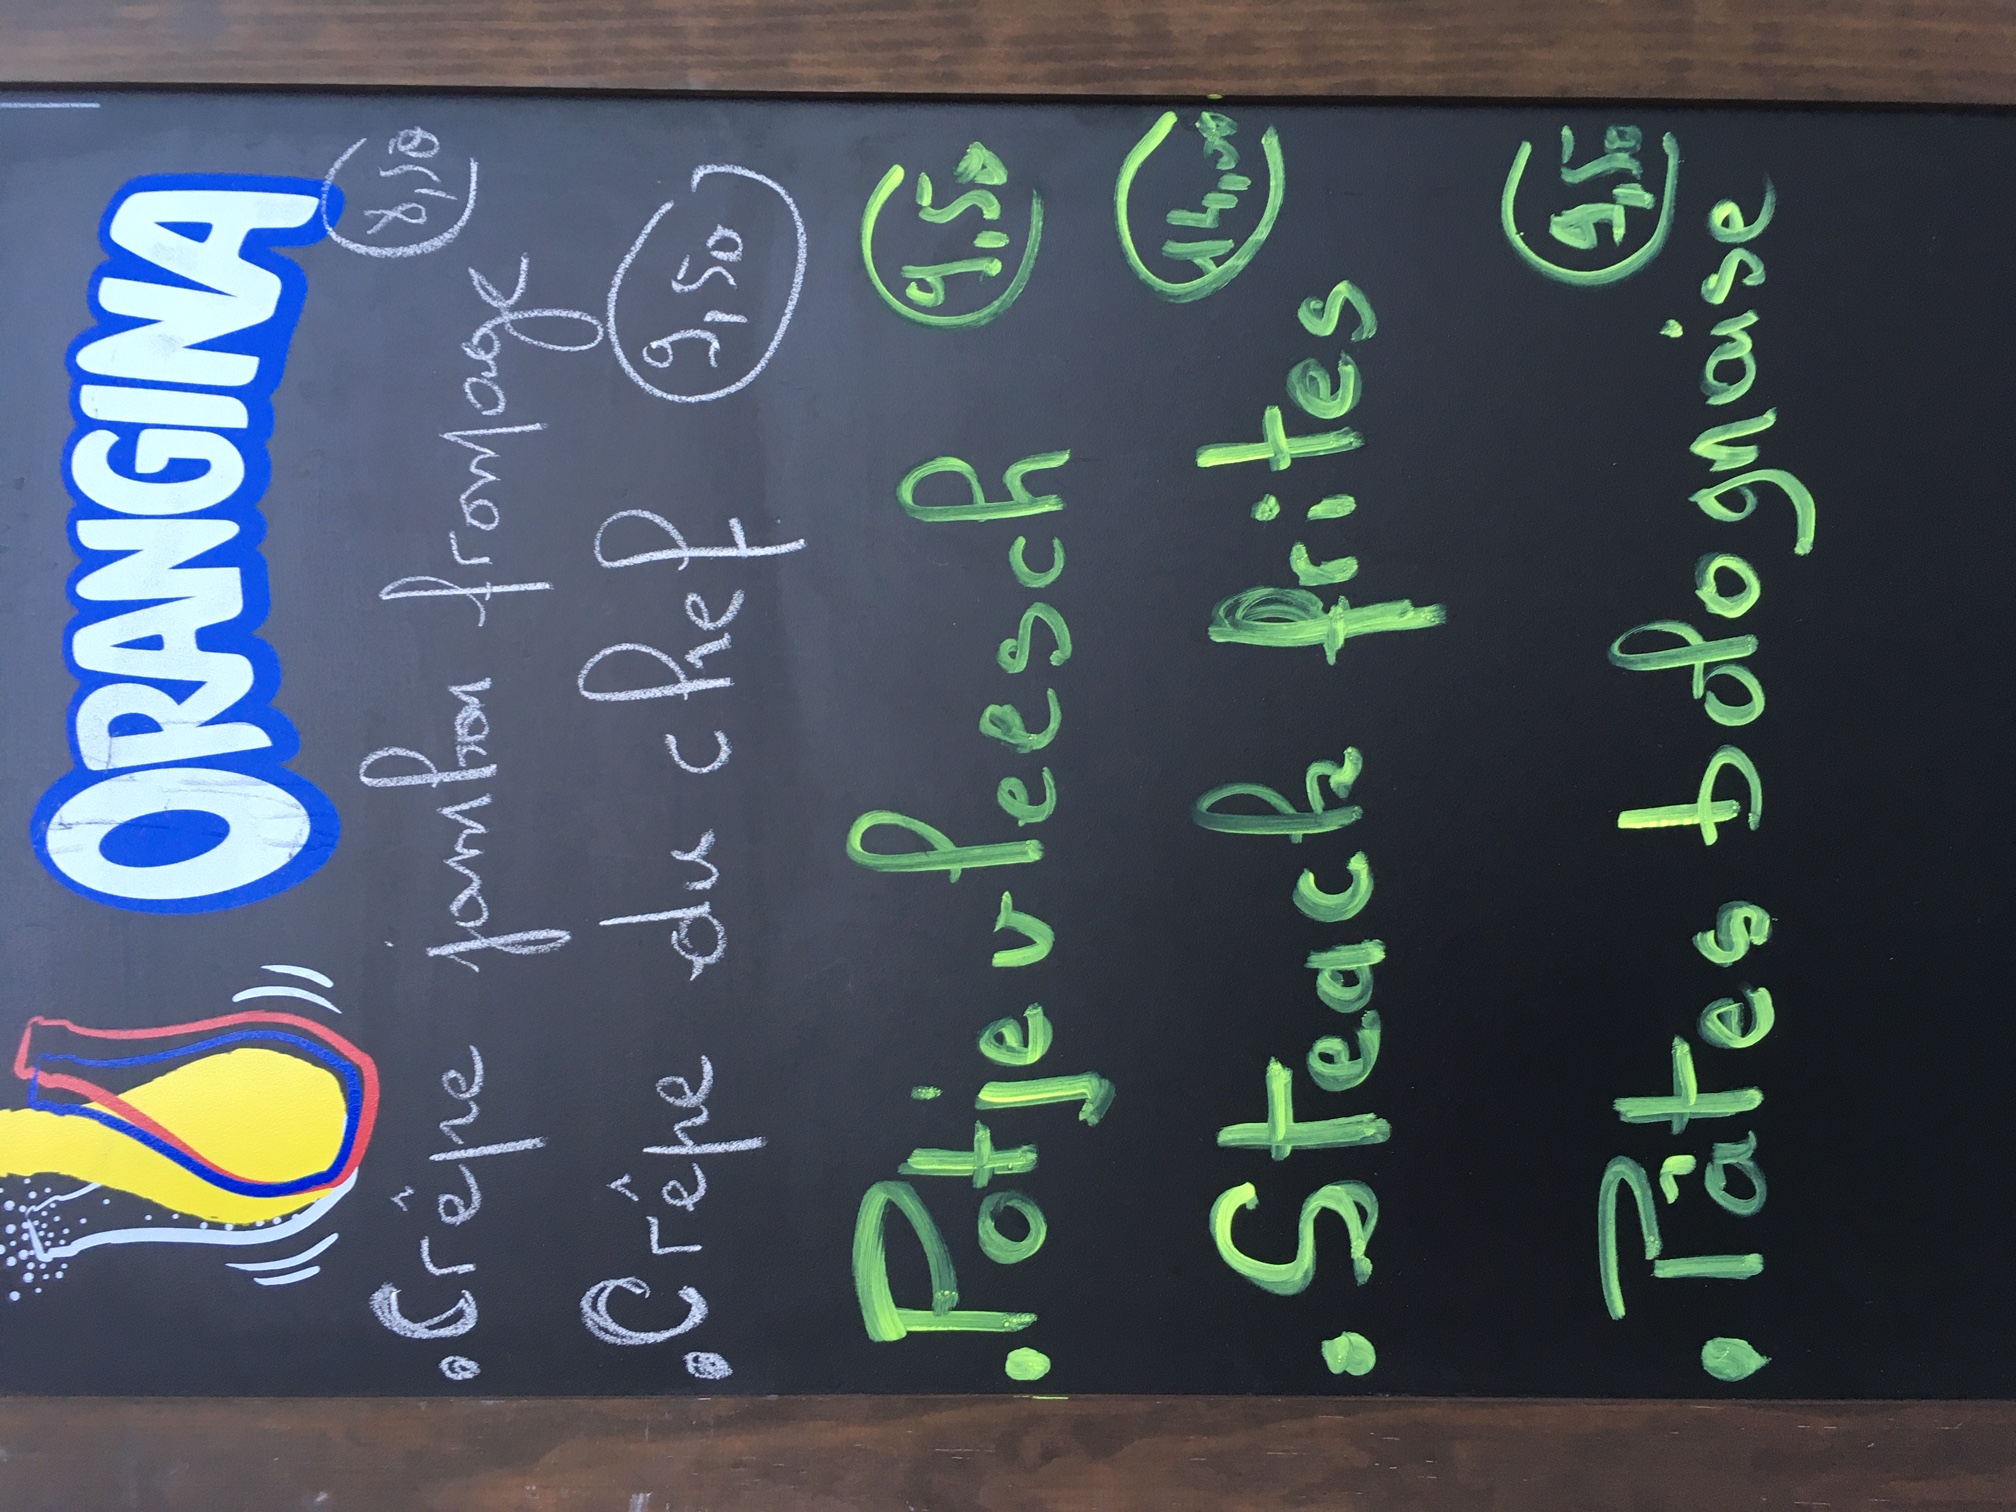 ORANGINA
• Crêpe jambon fromage 8,50
• Crêpe du chef 9,50
• Potjevfleesch 9,50
• Steack frites 14,00
• Pâtes bolognaise 9,50